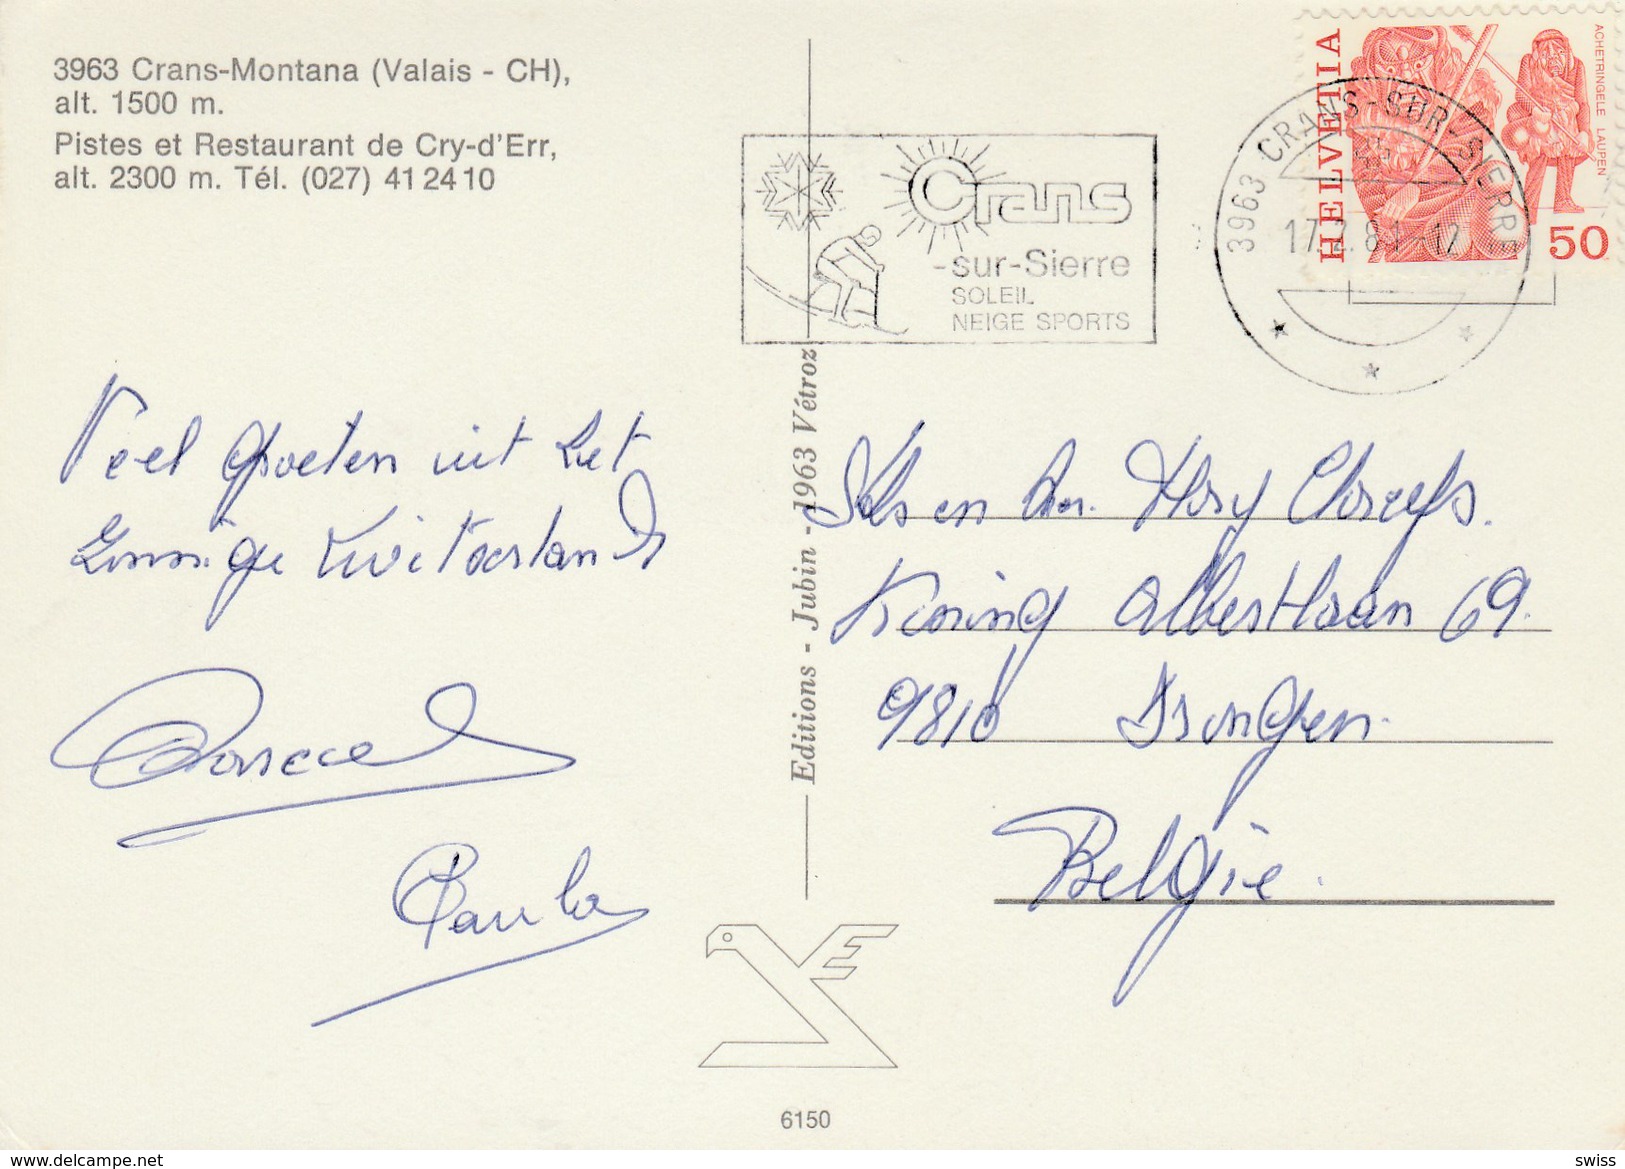 3963 Crans-Montana (Valais - CH),
alt. 1500 m.
Pistes et Restaurant de Cry-d'Err,
alt. 2300 m. Tél. (027) 41 24 10
Crans
-sur-Sierre
SOLEIL
NEIGE SPORTS
3963 CRANS-SUR-SIERRE
17.2.81-12
HELVETIA
ACHETRINGELE LAUPEN
50
Veel groeten uit het
zonnige Zwitserland
Paula
Editions - Jubin - 1963 Vétroz
en
Koning Albertlaan 69.
9810 Drongen.
België.
6150
delcampe.net
swiss